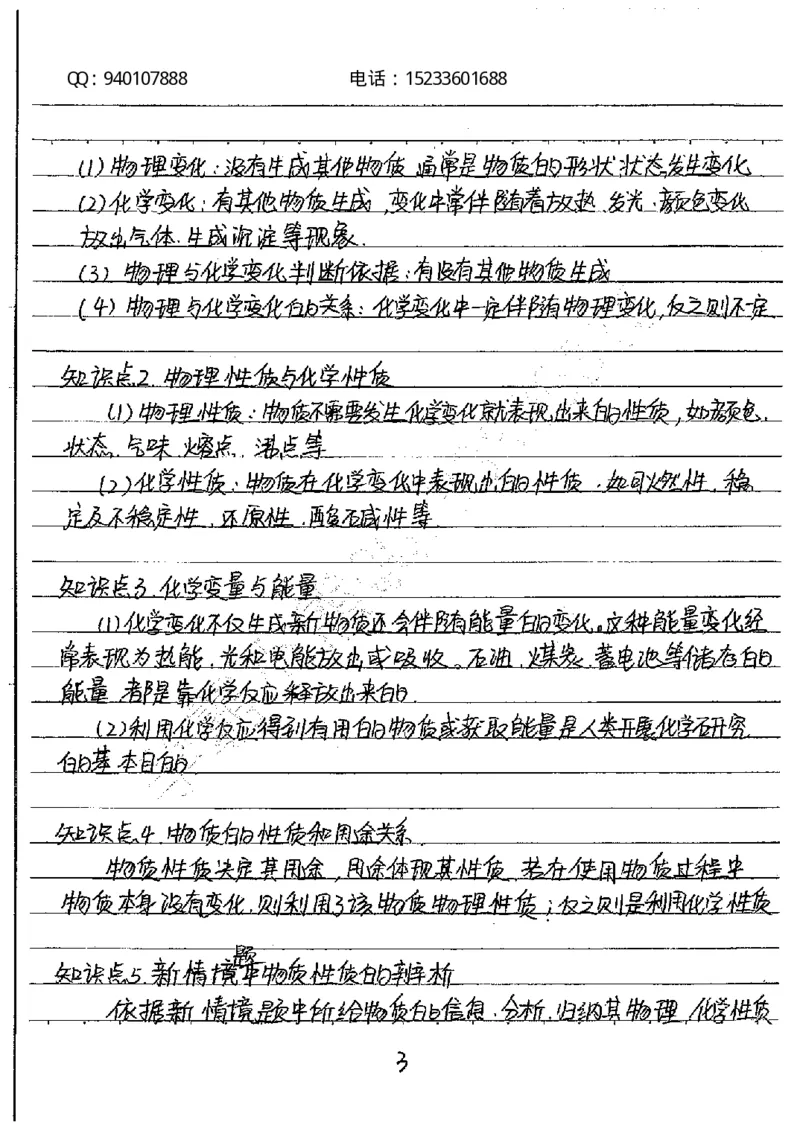 QQ：940107888 电话：15233601688
(1)物理变化：没有生成其他物质，通常是物质的形状、状态发生变化
(2)化学变化：有其他物质生成，变化中常伴随着放热、发光、颜色变化
放出气体、生成沉淀等现象.
(3)物理与化学变化判断依据：有没有其他物质生成
(4)物理与化学变化的关系：化学变化中一定伴随有物理变化，反之则不一定
知识点2.物理性质与化学性质
(1)物理性质：物质不需要发生化学变化就表现出来的性质，如颜色.
状态、气味、熔点、沸点等
(2)化学性质：物质在化学变化中表现出的性质.如可燃性、稳
定及不稳定性、还原性、酸碱性等
知识点3.化学变量与能量
(1)化学变化不仅生成新物质还会伴随有能量的变化。这种能量变化经
常表现为热能、光和电能放出或吸收。石油、煤炭、蓄电池等储存的
能量，都是靠化学反应释放出来的.
(2)利用化学反应得到有用的物质或获取能量是人类开展化学研究
的基本目的
知识点4.物质的性质和用途关系
物质性质决定其用途，用途体现其性质.若在使用物质过程中
物质本身没有变化，则利用了该物质物理性质；反之则是利用化学性质
知识点5.新情境题中物质性质的辨析
依据新情境题中所给物质的信息.分析.归纳其物理、化学性质
3